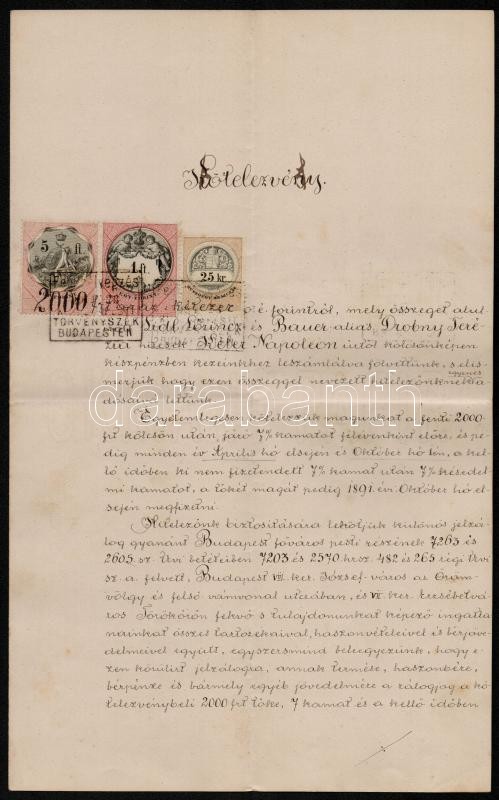 Kötelezvény.
5 ft
1 ft.
25 kr.
2000
kétezer o. é. forintról, mely összeget alul-
Lidl Lőrincz és Bauer alias Drobny Teré-
zia nácsek Keler Napoleon úrtól kölcsönképen
TÖRVÉNYSZÉK
BUDAPESTEN
készpénzben kezeinkhez leszámlálva felvettünk, s elis-
egyenes
merjük hogy ezen összeggel nevezett hitelezőnknek
adósaivá lettünk.
Egyetemlegesen kötelezzük magunkat a fenti 2000
frt kölcsön után, járó 7% kamatot félévenként előre, és pe-
dig minden év Április hó elsején és Október hó 1én, a kel-
lő időben ki nem fizetendett 7% kamat után 7% késedel-
mi kamatot, a tőkét magát pedig 1891. évi Október hó el-
sején megfizetni.
Hitelezőnk biztosítására lekötjük különös jelzá-
log gyanánt Budapest főváros pesti részének 7263 és
2605. sz. tkvi betéteiben 7203 és 2570. hrsz. 482 és 265 régi tkvi
sz. a. felvett, Budapest VIII. ker. József-város az Orom-
völgy és felső vámvonal utczában, és VII. ker. Erzsébetvá-
ros Törökőrön fekvő s tulajdonunkat képező ingatla-
nainkat összes tartozékaival, haszonvételeivel és bérjöve-
delmeivel együtt, egyszersmind beleegyezünk, hogy e-
zen körülirt jelzálogra, annak termése, haszonbére,
bérpénze és bármely egyéb jövedelmére a zálogjog a kö-
telezvénybeli 2000 frt tőke, 7 kamat és a kellő időben
darabanth.com